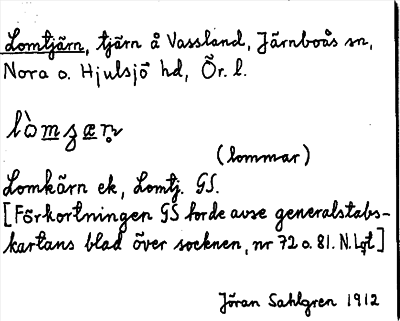 Lomtjärn, tjärn å Vassland, Järnboås sn,
Nora o. Hjulsjö hd, Ör. l.
(lommar)
Lomkärn ek, Lomtj. GS.
[Förkortningen GS torde avse generalstabs-
kartans blad över socknen, nr 72 o. 81. N. Lgt]
Jöran Sahlgren 1912